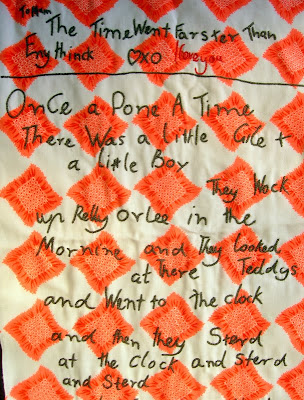 To Mum
The Time Went Farster Than
Enythinck ♡xo I love you
Once a Pone A Time
There Was a Little Gile +
a Little Boy
They Wock
up Relly Orlee in the
Morning and They Looked
at There Teddys
and Went to The clock
and then they Sterd
at the Clock and Sterd
and Sterd